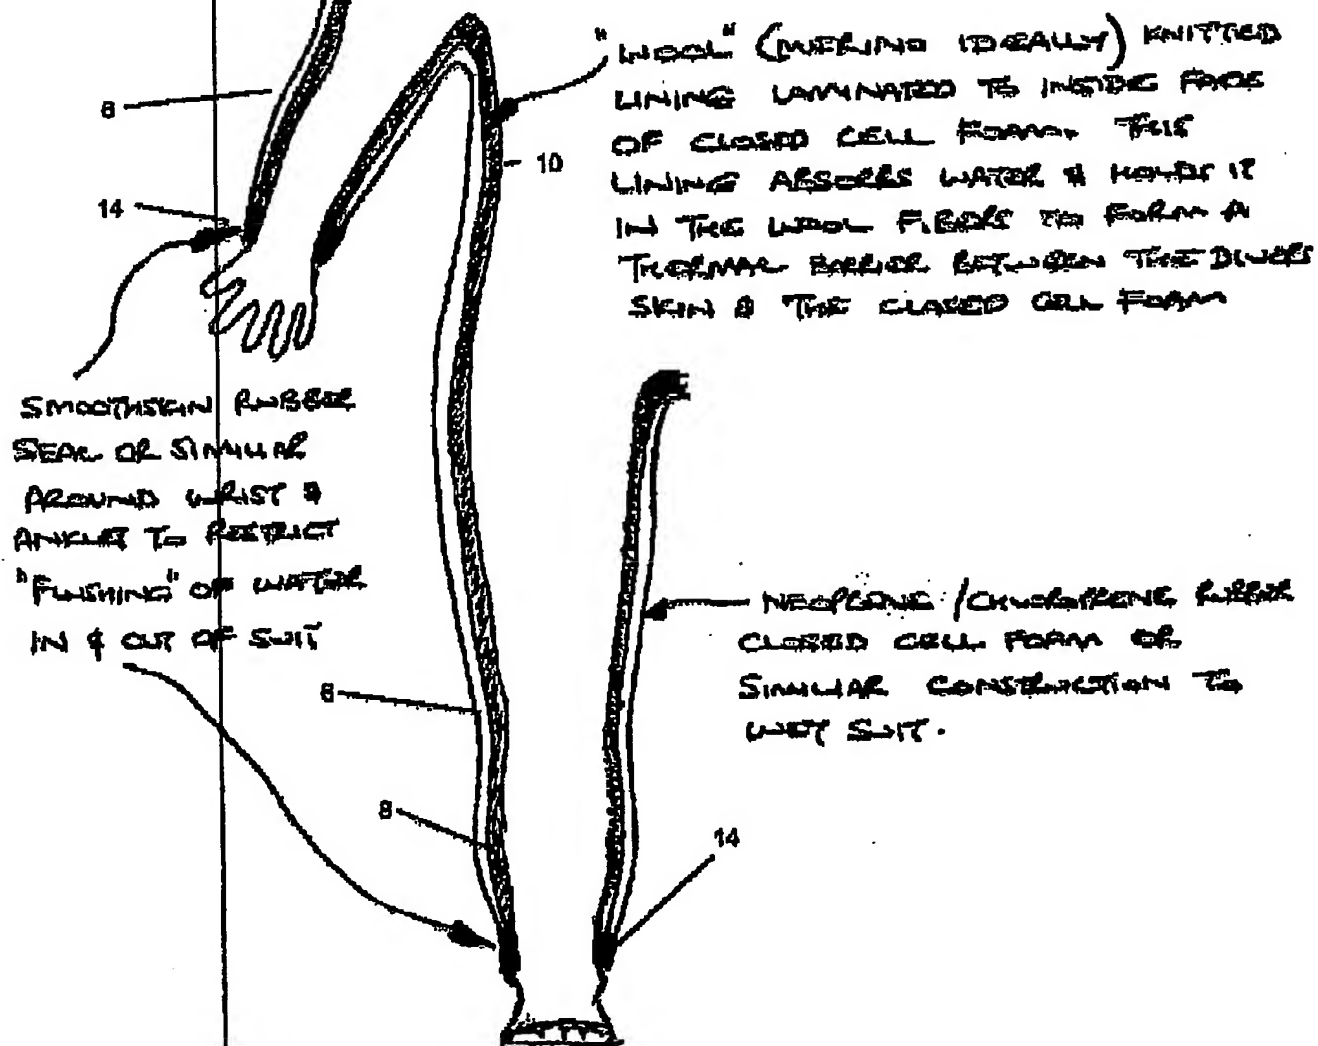 "WOOL" (MERINO IDEALLY) KNITTED
LINING LAMINATED TO INSIDE FACE
OF CLOSED CELL FORM. THIS
LINING ABSORBS WATER & HOLDS IT
IN THE WOOL FIBERS TO FORM A
THERMAL BARRIER BETWEEN THE DIVERS
SKIN & THE CLOSED CELL FORM
6
10
14
SMOOTHSKIN RUBBER
SEAL OR SIMILIAR
AROUND WRIST &
ANKLES TO RESTRICT
"FLUSHING" OF WATER
IN & OUT OF SUIT
NEOPRENE / CHLOROPRENE RUBBER
CLOSED CELL FORM OR
SIMILIAR CONSTRUCTION TO
WET SUIT.
6
8
14